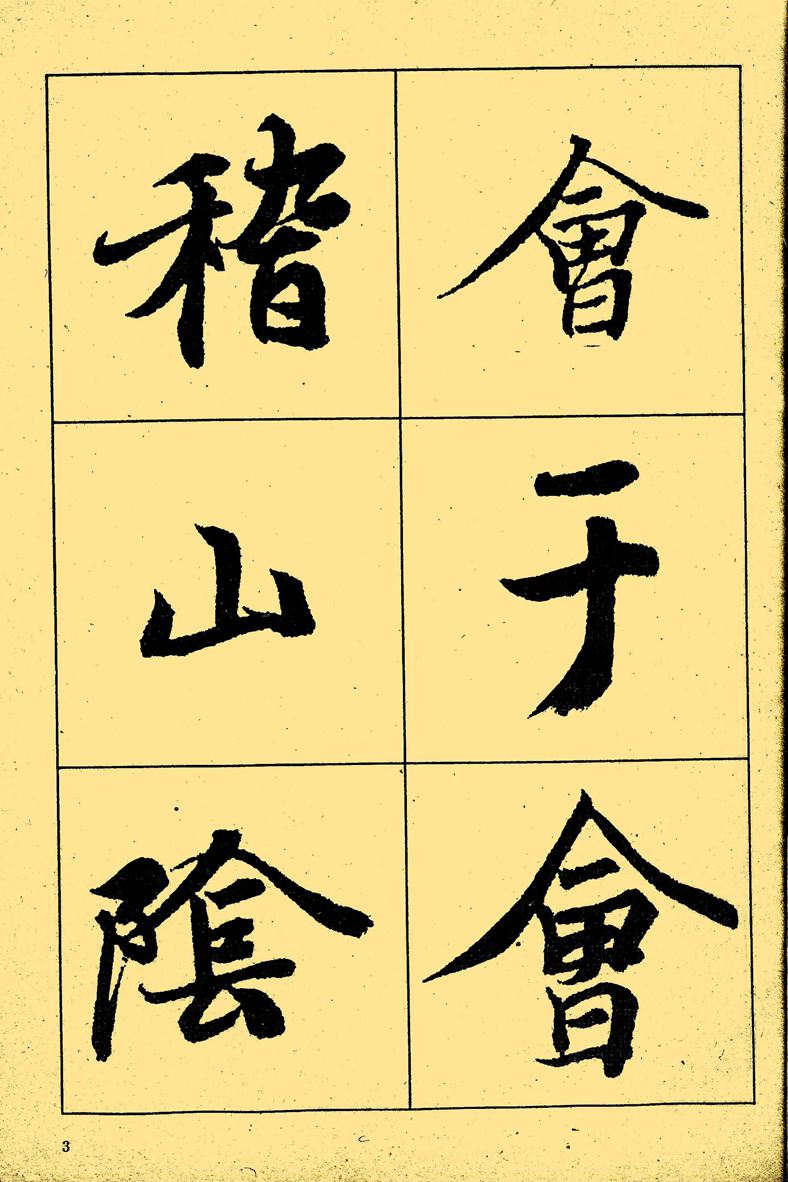 會于會
稽山陰
3